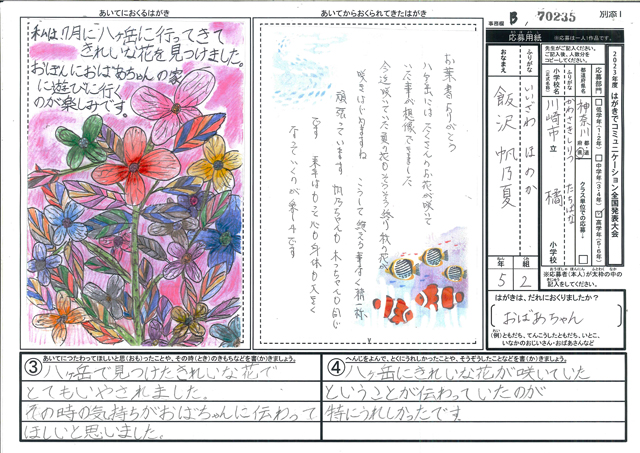 あいてにおくるはがき
私は7月に八ヶ岳に行ってきて
きれいな花を見つけました。
おぼんにおばあちゃんの家
に遊びに行く
のが楽しみです。
あいてからおくられてきたはがき
お葉書ありがとう
八ヶ岳にはたくさんのお花が咲いて
いた事が想像できました
事務欄 B, 70235
別添1
応募用紙
※応募は一人1作品です。
先生がご記入ください。
ご記入後、人数分を
コピーしてください。
2023年度 はがきでコミュニケーション全国発表大会
応募部門
低学年(1・2年)
中学年(3・4年)
高学年(5・6年)
都道府県名
神奈川
都道府県
クラス単位での応募
ふりがな
かわさきしりつ たちばな
小学校名
(正式名称)
川崎市立 橘 小学校
ふりがな
いいざわ ほのか
おなまえ
飯沢 帆乃夏
年 組
5 2
※応募者(本人)が太枠の中の
記入をしてください。
はがきは、だれにおくりましたか?
(おばあちゃん)
(例)ともだち、てんこうしたともだち、いとこ、
いなかのおじいさん・おばあさんなど
③ あいてにつたわってほしいと思(おも)ったことや、その時(とき)のきもちなどを書(か)きましょう。
八ヶ岳で見つけたきれいな花で
とてもいやされました。
その時の気持ちがおばちゃんに伝わって
ほしいと思いました。
④ へんじをよんで、とくにうれしかったことや、そうぞうしたことなどを書(か)きましょう。
八ヶ岳にきれいな花が咲いていた
ということが伝わっていたのが
特にうれしかったです。